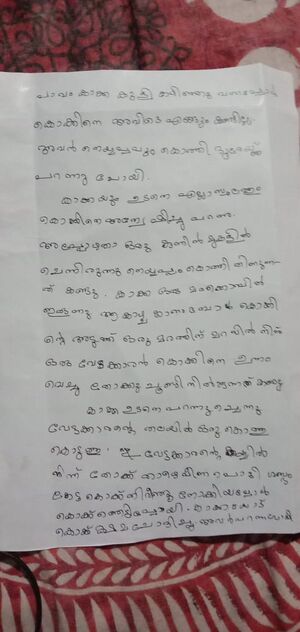 പാവം കാക്ക കുളി കഴിഞ്ഞു വന്നപ്പോൾ
കൊക്കിനെ അവിടെ എങ്ങും കണ്ടില്ല.
അവൻ നെയ്യപ്പവും കൊത്തി ദൂരേയ്ക്ക്
പറന്നു പോയി.
കാക്കയും ഉടനെ എല്ലാസ്ഥലത്തും
കൊക്കിനെ അന്വേഷിച്ചു പറന്നു.
അപ്പോഴതാ ഒരു കുന്നിൻ മുകളിൽ
ചെന്നിരുന്നു നെയ്യപ്പം കൊത്തി തിന്നുന്ന
ത് കണ്ടു. കാക്ക ഒരു മരക്കൊമ്പിൽ
ഇരുന്നു ആ കാഴ്ച കാണുമ്പോൾ കൊക്കി
ന്റെ അടുത്ത് ഒരു മരത്തിന് മറവിൽ നിന്ന്
ഒരു വേട്ടക്കാരൻ കൊക്കിനെ ഉന്നം
വെച്ചു തോക്കു ചൂണ്ടി നിൽക്കുന്നത് കണ്ടു
കാക്ക ഉടനെ പറന്നു ചെന്നു
വേട്ടക്കാരന്റെ തലയിൽ ഒരു കൊത്തു
കൊടുത്തു. വേട്ടക്കാരന്റെ കയ്യിൽ
നിന്ന് തോക്ക് താഴെവീണു പൊട്ടി ശബ്ദം
കേട്ട കൊക്ക് തിരിഞ്ഞു നോക്കിയപ്പോൾ
കൊക്ക് ഞെട്ടിപ്പോയി. കാക്കയോട്
കൊക്ക് ക്ഷമ ചോദിച്ചു അവർ പറന്നുപോയി